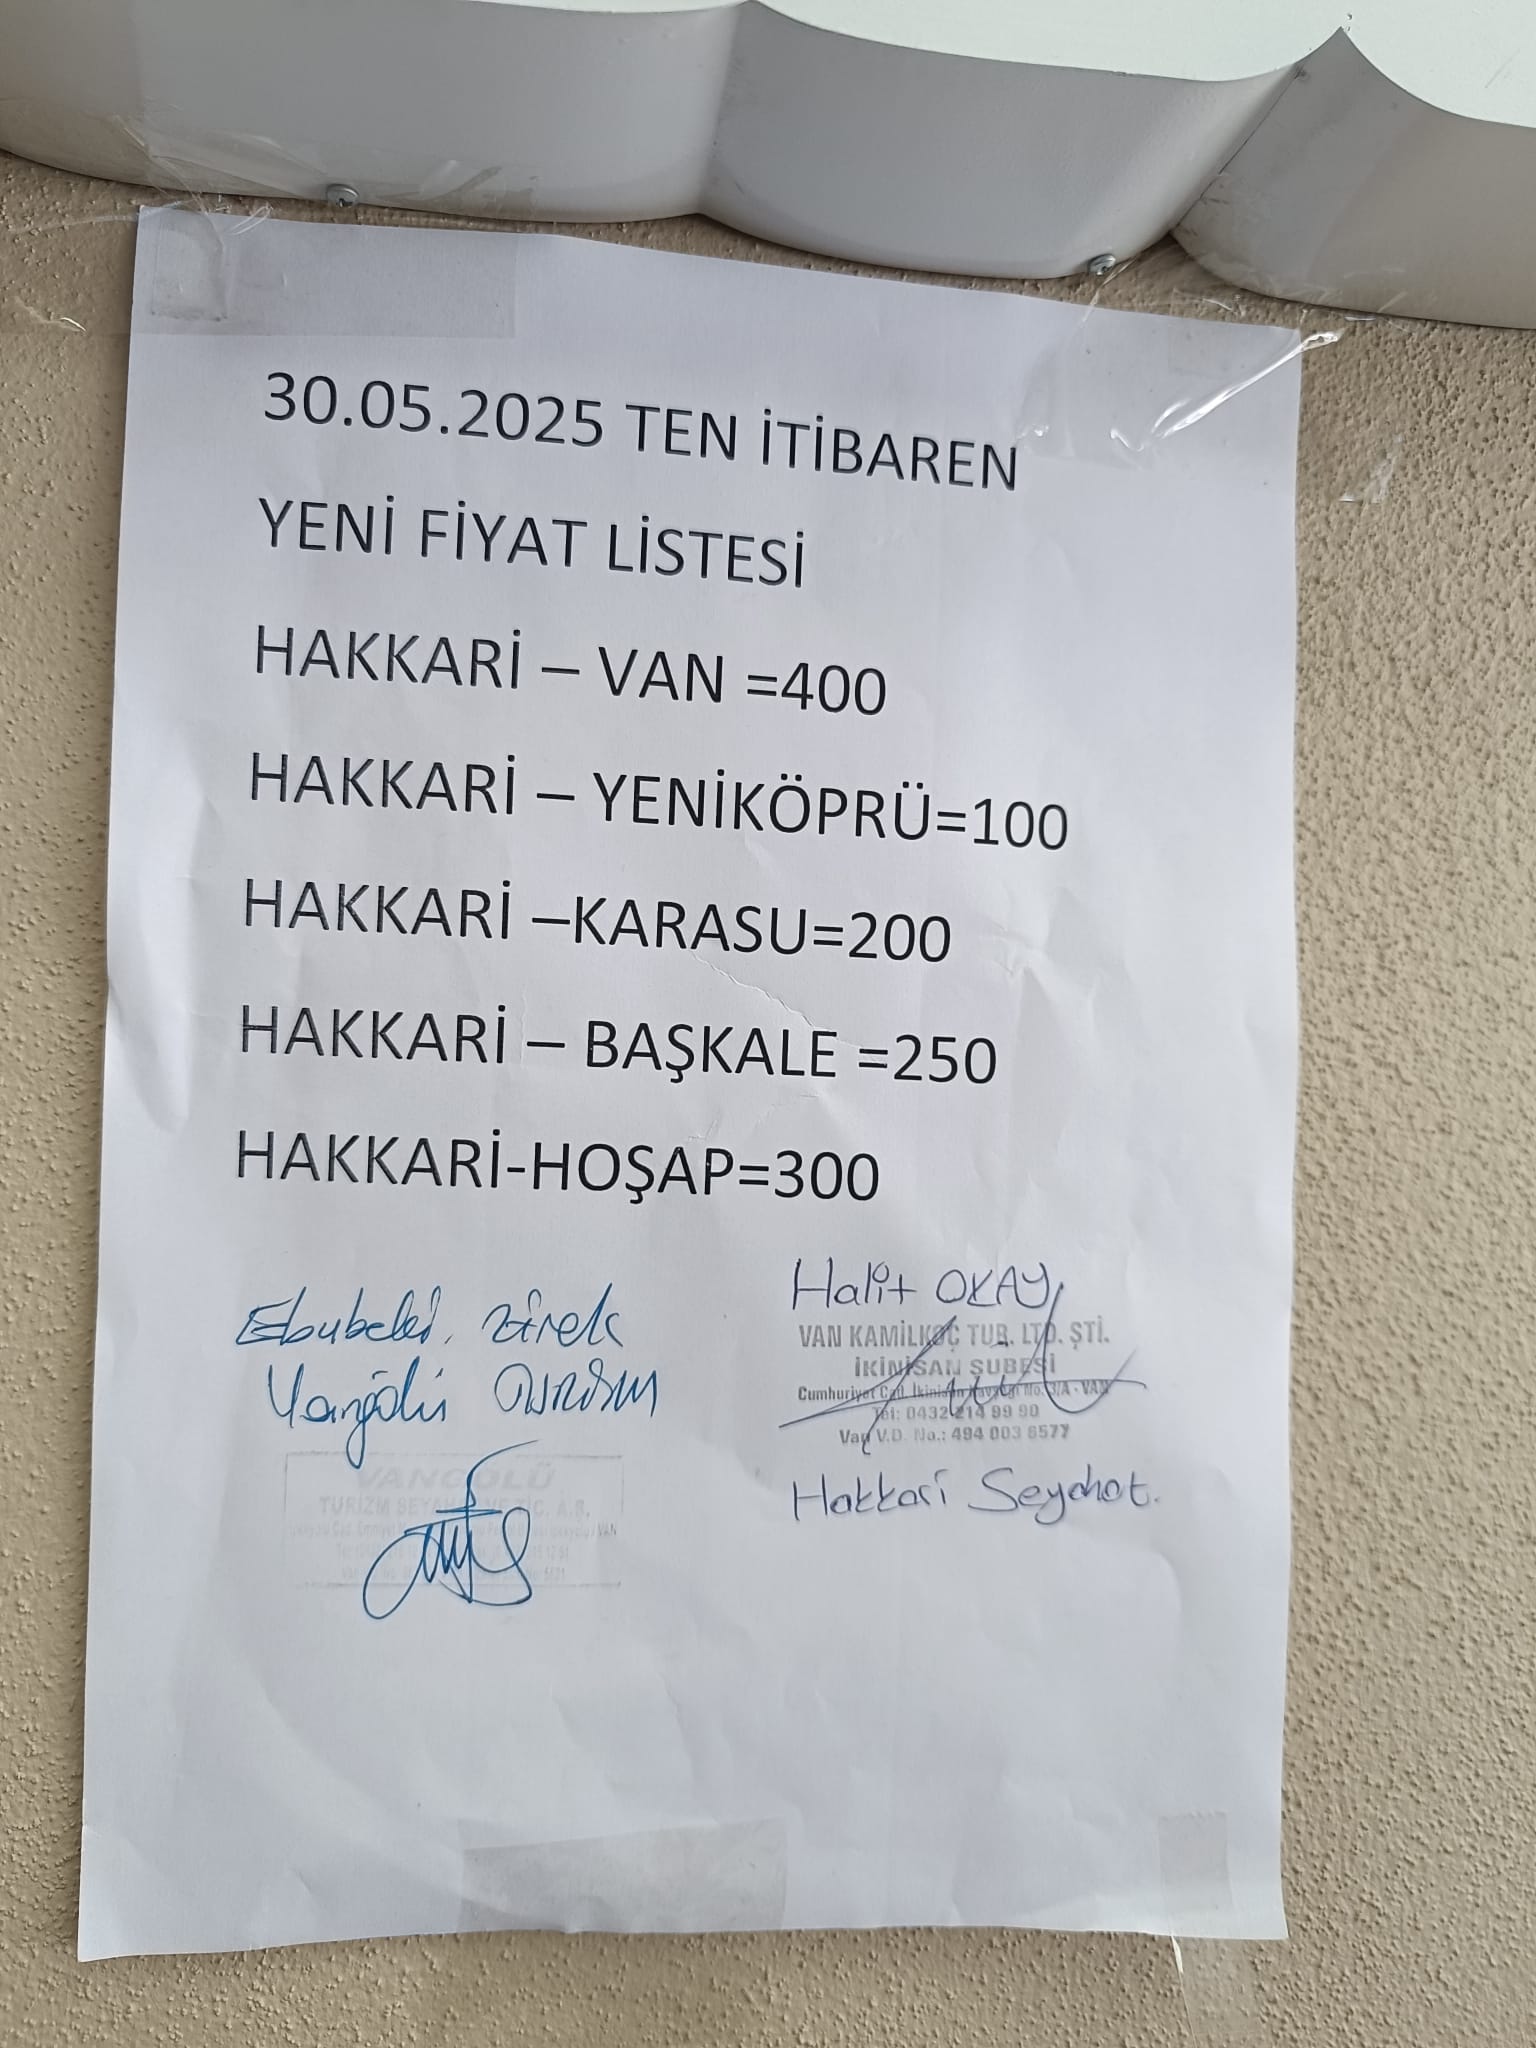 30.05.2025 TEN İTİBAREN
YENİ FİYAT LİSTESİ
HAKKARİ – VAN =400
HAKKARİ – YENİKÖPRÜ=100
HAKKARİ –KARASU=200
HAKKARİ – BAŞKALE =250
HAKKARİ-HOŞAP=300
Ebubekir zirek
Vangölü
VANGÖLÜ
TURİZM SEYAHAT VE TİC. A.Ş.
Halit OKAY
VAN KAMİLKOÇ TUR. LTD. ŞTİ.
İKİNİSAN ŞUBESİ
Cumhuriyet Cad. İkinisan Kavşağı No: 3/A - VAN
Tel: 0432 214 99 90
Van V.D. No.: 494 003 6577
Hakkari Seyahat.